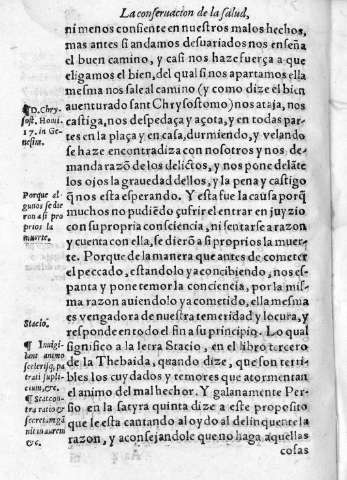 La conseruacion de la salud,
ni menos consiente en nuestros malos hechos,
mas antes si andamos desuariados nos enseña
el buen camino, y casi nos haze fuerça a que
eligamos el bien, del qual si nos apartamos ella
mesma nos sale al camino (y como dize el bien
auenturado sant Chrysostomo) nos ataja, nos
castiga, nos despedaça y açota, y en todas par-
tes en la plaça y en casa, durmiendo, y velando
se haze encontradiza con nosotros y nos de-
manda razõ de los delictos, y nos pone delãte
los ojos la grauedad dellos, y la pena y castigo
q̃ nos esta esperando. Y esta fue la causa porq̃
muchos no pudiẽdo çufrir el entrar en juyzio
con su propria consciencia, ni sentarse a razon
y cuenta con ella, se dierõ a si proprios la muer-
te. Porque de la manera que antes de cometer
el peccado, estandolo ya concibiendo, nos es-
panta y pone temor la conciencia, por la mis-
ma razon auiendolo ya cometido, ella mesma
es vengadora de nuestra temeridad y locura, y
responde en todo el fin a su principio. Lo qual
significo a la letra Stacio, en el libro tercero
de la Thebaida, quando dize, que son terri-
bles los cuydados y temores que atormentan
el animo del malhechor. Y galanamente Per-
sio en la satyra quinta dize a este proposito
que le esta cantando al oydo al delinquente la
razon, y aconsejandole que no haga aquellas
cosas
¶ D. Chry-
sost. Homi.
17. in Ge-
nesim.
Porque al-
gunos se die
ron a si pro
prios la
muerte.
Stacio.
¶ Inuigi-
lant animo
scelerisq, pa
trati supli-
cium, &c.
¶ Stat con-
tra ratio &
secretam gã
nit in aurem
&c.